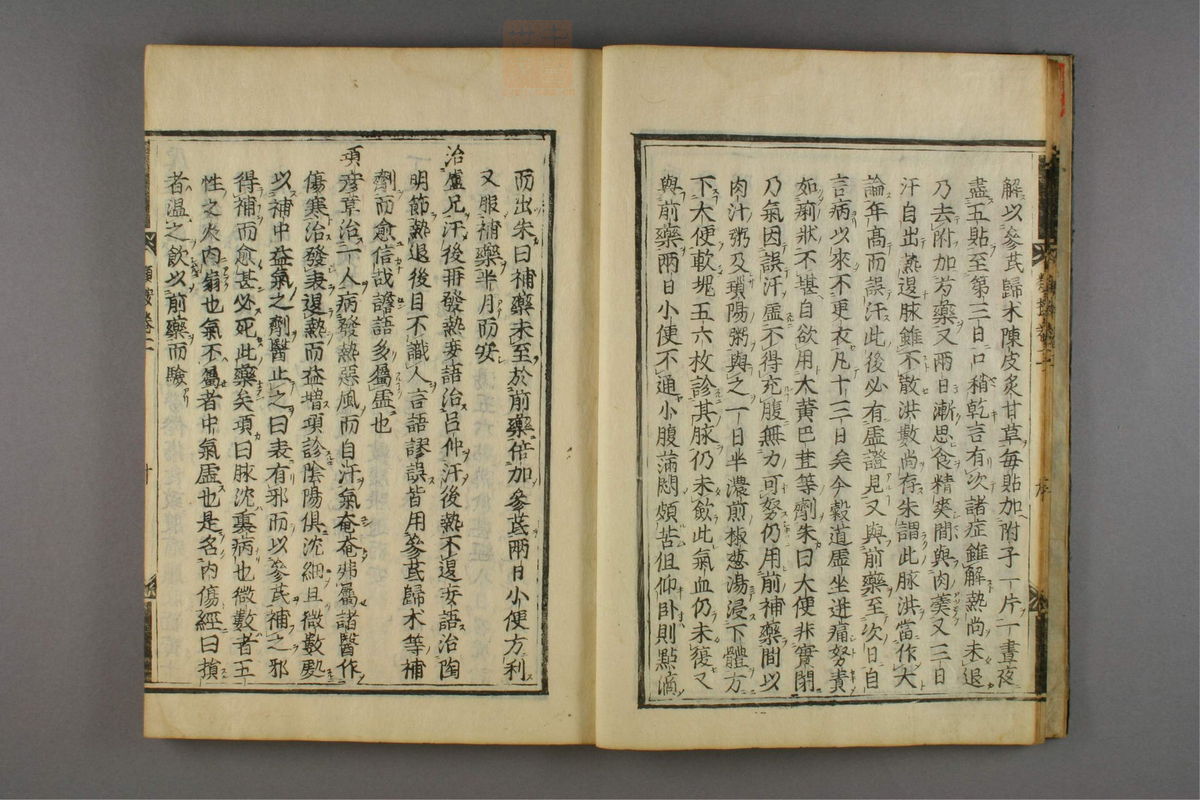 解以參芪歸术陳皮炙甘草毎貼加附子一片一晝夜
盡五貼至第三日口稍乾言有次諸症雖解熱尚未退
乃去附加芍藥又兩日漸思食精爽間與肉羹又三日
汗自出熱退脉雖不散洪數尚存朱謂此脉洪當作大
論年高而誤汗此後必有虛證見又與前藥至次日自
言病以來不更衣凡十三日矣今穀道虛坐迸痛努責
如痢狀不堪自欲用大黄巴荳等劑朱曰大便非實閉
乃氣因誤汗虛不得充腹無力可努仍用前補藥間以
肉汁粥及瑣陽粥與之一日半濃煎椒葱湯浸下體方
下大便軟塊五六枚診其脉仍未斂此氣血仍未復又
與前藥兩日小便不通小腹滿悶頗苦但仰卧則點滴
而出朱曰補藥未至於前藥倍加參芪兩日小便方利
又服補藥半月而安
治盧兄汗後冊發熱妄語治吕仲汗後熱不退妄語治陶
明節熱退後目不識人言語謬誤皆用參芪歸术等補
劑而愈信哉譫語多屬虛也
項彦章治一人病發熱惡風而自汗氣奄奄弗屬諸醫作
傷寒治發表退熱而益増項診陰陽俱沈細且微數處
以補中益氣之劑醫止之曰表有邪而以參芪補之邪
得補而愈甚必死此藥矣項曰脉沈裏病也微數者五
性之火内煽也氣不屬者中氣虛也是名内傷經曰損
者温之飲以前藥而驗